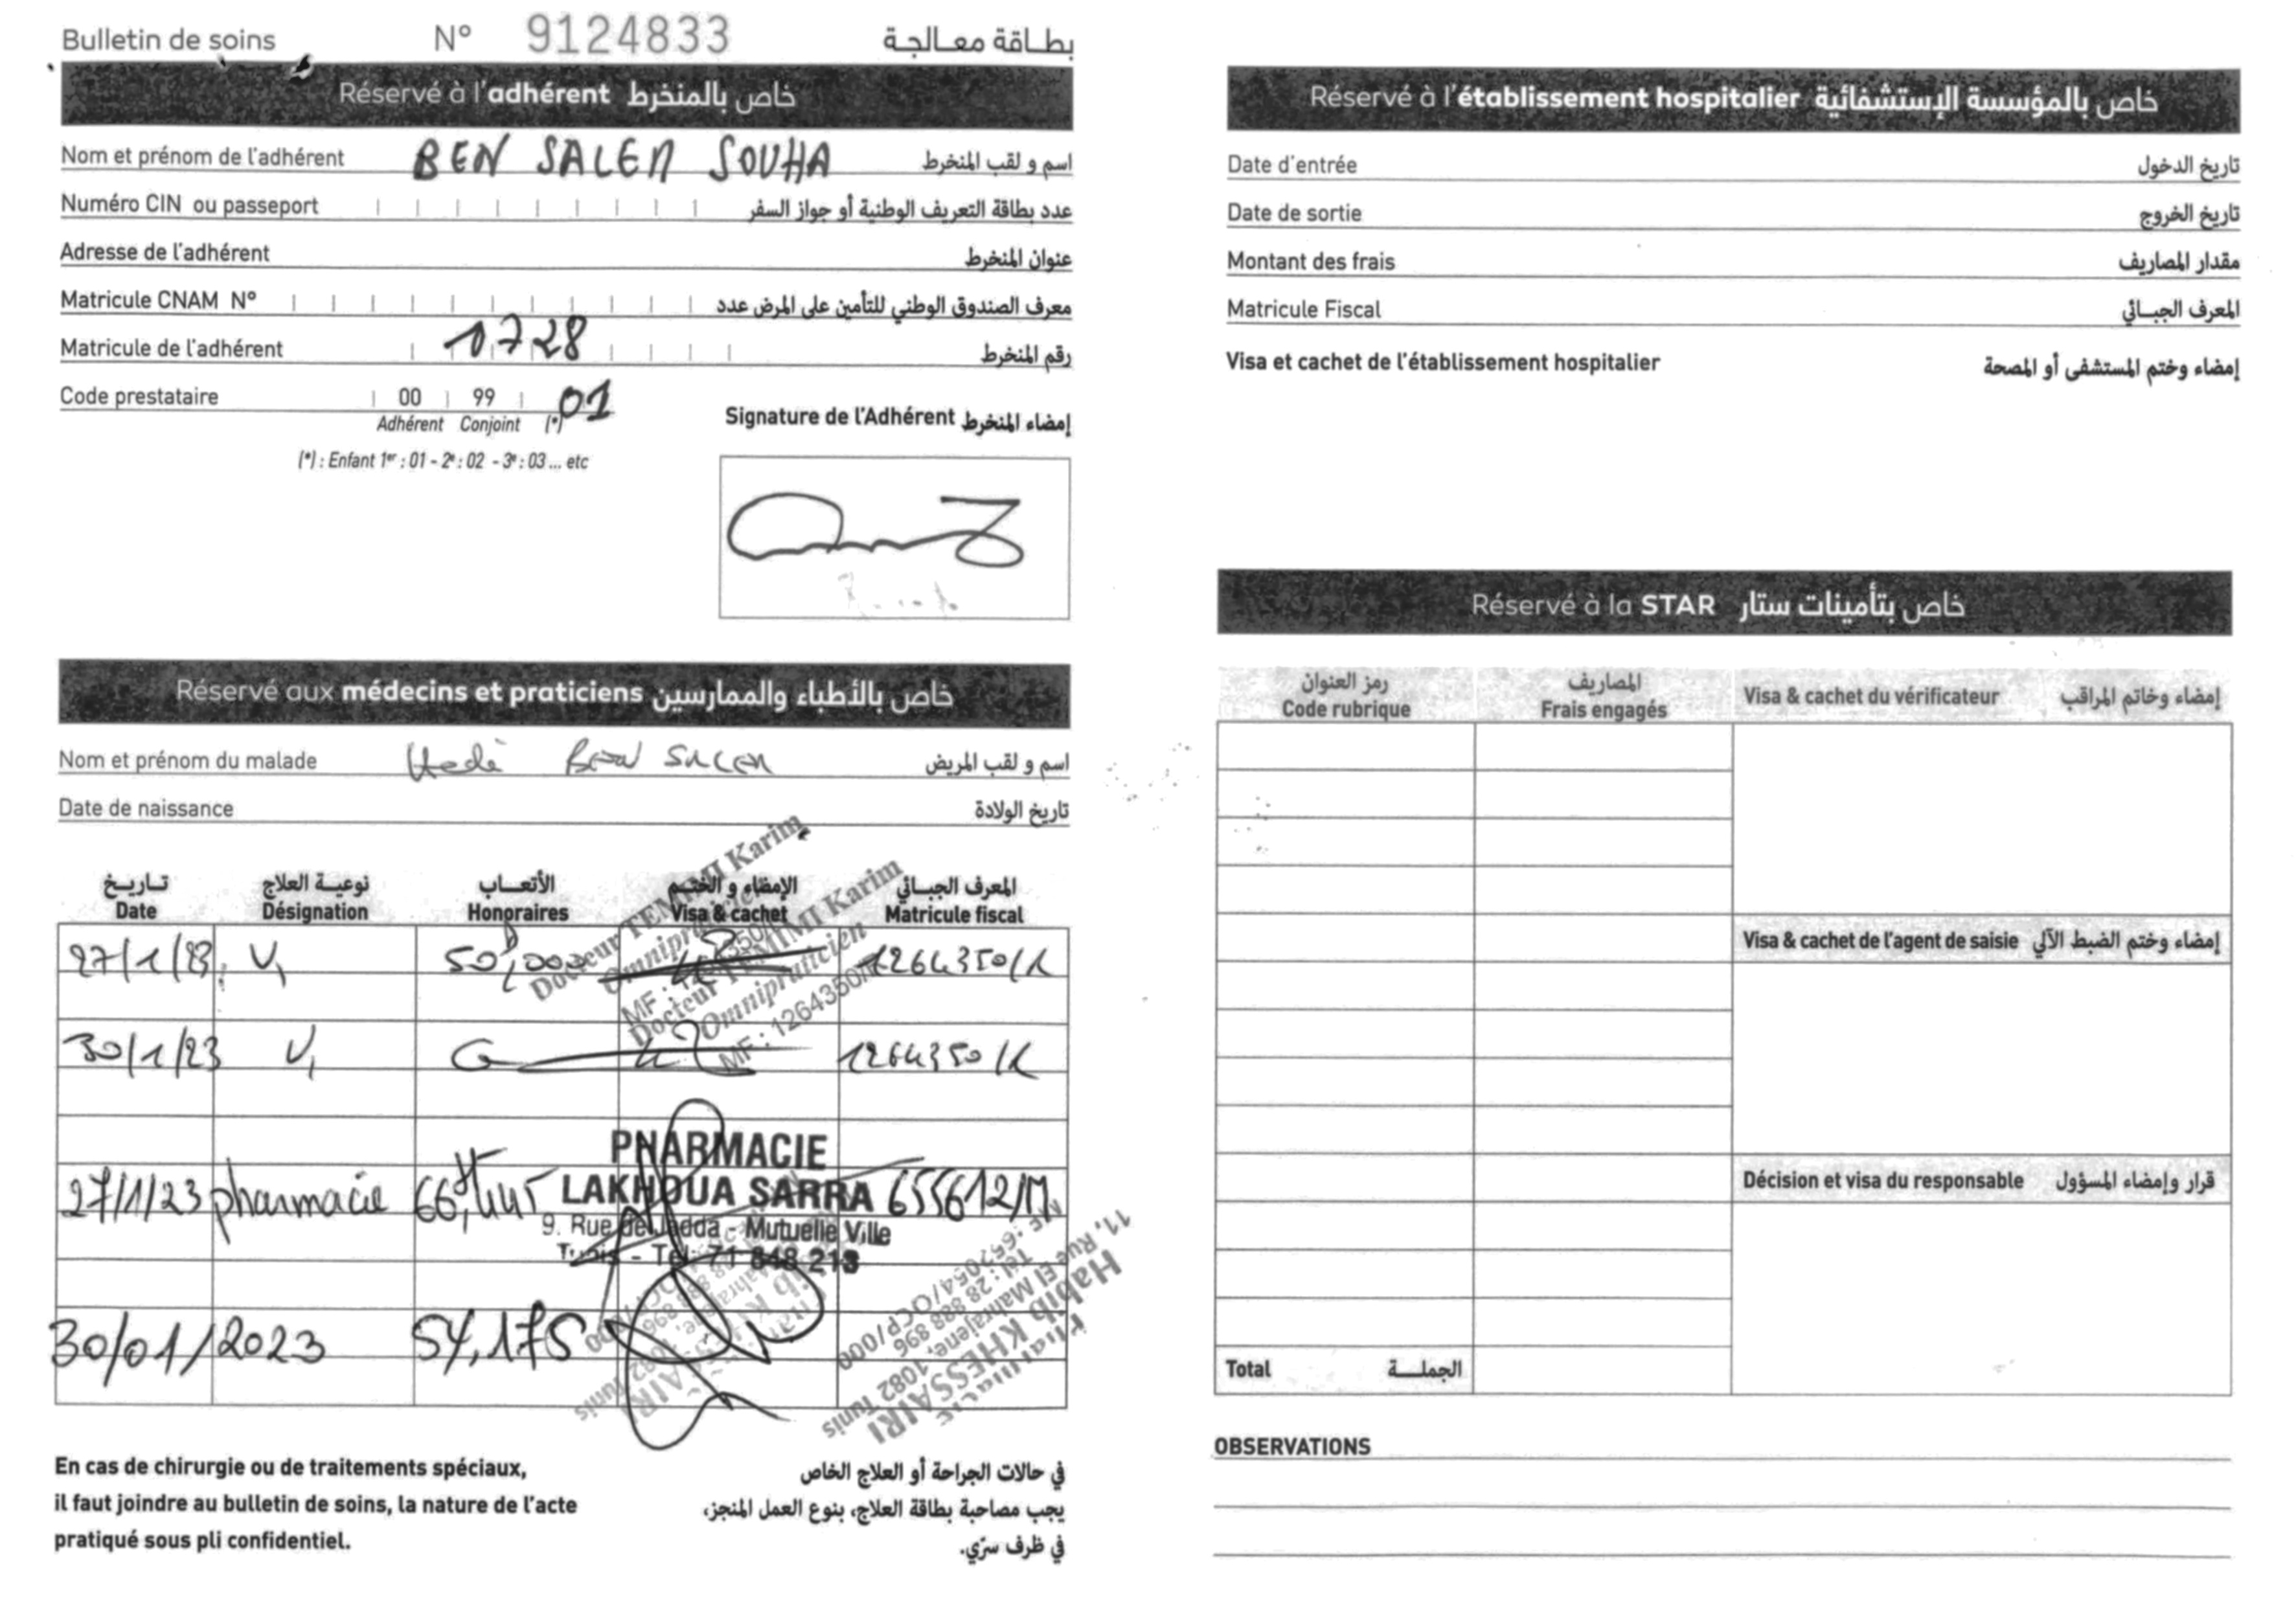 Bulletin de soins N° 9124833 بطاقة معالجة
Réservé à l'adhérent خاص بالمنخرط
Nom et prénom de l'adhérent BEN SALEM SOUHA اسم و لقب المنخرط
Numéro CIN ou passeport عدد بطاقة التعريف الوطنية أو جواز السفر
Adresse de l'adhérent عنوان المنخرط
Matricule CNAM N° معرف الصندوق الوطني للتأمين على المرض عدد
Matricule de l'adhérent 1728 رقم المنخرط
Code prestataire 00 99 01
Adhérent Conjoint (*)
(*) : Enfant 1er : 01 - 2e : 02 - 3e : 03 ... etc
Signature de l'Adhérent إمضاء المنخرط
Réservé aux médecins et praticiens خاص بالأطباء والممارسين
Nom et prénom du malade Hedi BEN SALEM اسم و لقب المريض
Date de naissance تاريخ الولادة
تاريخ نوعية العلاج الأتعاب الإمضاء و الختم المعرف الجبائي
Date Désignation Honoraires Visa & cachet Matricule fiscal
Docteur TEMIMI Karim
Omnipraticien
27/1/23 V1 50,000 1264350/K
Docteur TEMIMI Karim
Omnipraticien
MF : 1264350/
30/1/23 V1 G 1264350/K
PHARMACIE
LAKHOUA SARRA
9. Rue de Jadda - Mutuelle Ville
Tunis - Tel: 71 848 213
27/1/23 pharmacie 66,445 655612/M
30/01/2023 54,175
Pharmacie
Habib KHESSAIRI
11, Rue El Mahrajene, 1082 Tunis
Tél : 28 888 896
/OCP/000
En cas de chirurgie ou de traitements spéciaux,
il faut joindre au bulletin de soins, la nature de l'acte
pratiqué sous pli confidentiel.
في حالات الجراحة أو العلاج الخاص
يجب مصاحبة بطاقة العلاج، بنوع العمل المنجز،
في ظرف سرّي.
Réservé à l'établissement hospitalier خاص بالمؤسسة الإستشفائية
Date d'entrée تاريخ الدخول
Date de sortie تاريخ الخروج
Montant des frais مقدار المصاريف
Matricule Fiscal المعرف الجبائي
Visa et cachet de l'établissement hospitalier إمضاء وختم المستشفى أو المصحة
Réservé à la STAR خاص بتأمينات ستار
رمز العنوان المصاريف
Code rubrique Frais engagés Visa & cachet du vérificateur إمضاء وخاتم المراقب
Visa & cachet de l'agent de saisie إمضاء وختم الضبط الآلي
Décision et visa du responsable قرار وإمضاء المسؤول
Total الجملة
OBSERVATIONS